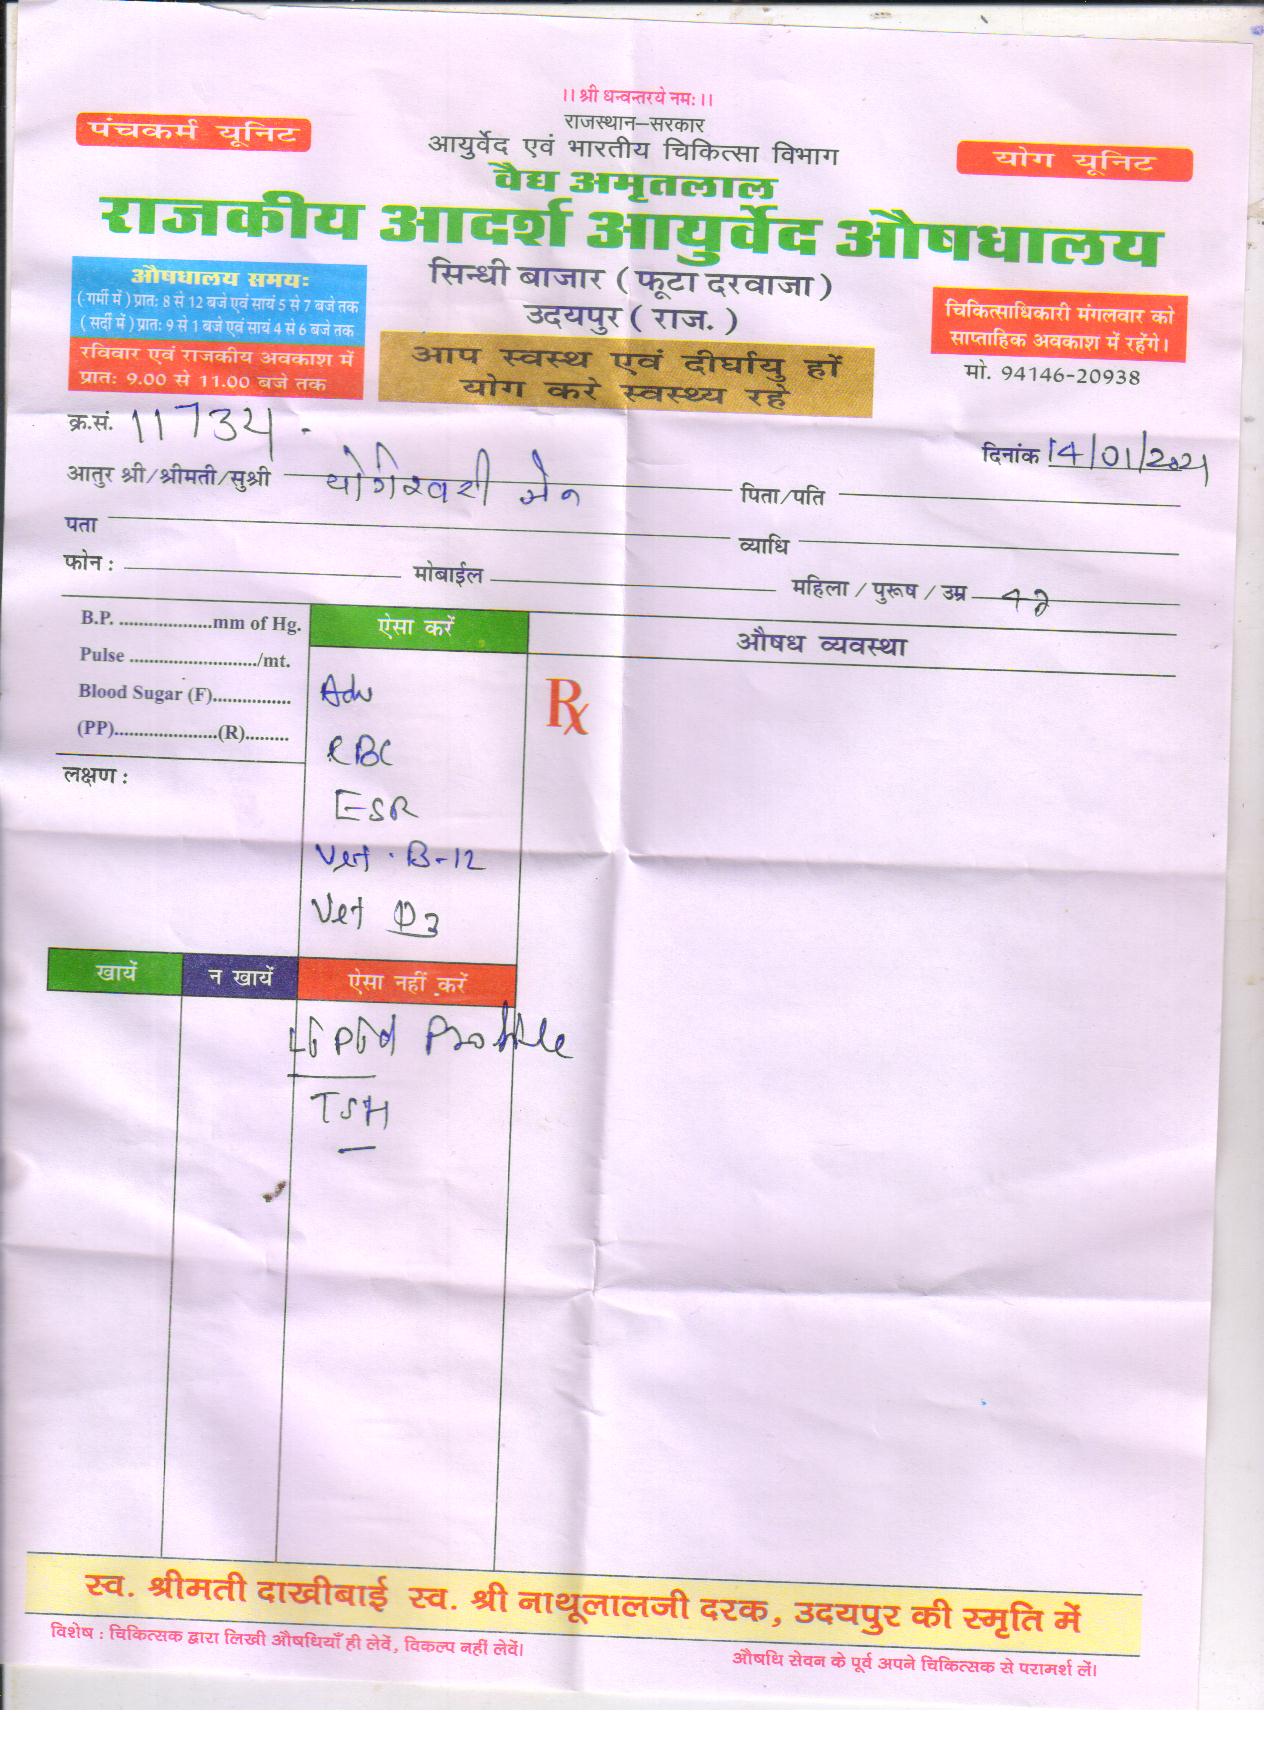 ।। श्री धन्वन्तरये नमः ।।
राजस्थान–सरकार
पंचकर्म यूनिट
आयुर्वेद एवं भारतीय चिकित्सा विभाग
योग यूनिट
वैद्य अमृतलाल
राजकीय आदर्श आयुर्वेद औषधालय
औषधालय समयः
( गर्मी में ) प्रातः 8 से 12 बजे एवं सायं 5 से 7 बजे तक
( सर्दी में ) प्रातः 9 से 1 बजे एवं सायं 4 से 6 बजे तक
रविवार एवं राजकीय अवकाश में
प्रातः 9.00 से 11.00 बजे तक
सिन्धी बाजार ( फूटा दरवाजा )
उदयपुर ( राज. )
आप स्वस्थ एवं दीर्घायु हों
योग करे स्वस्थ्य रहे
चिकित्साधिकारी मंगलवार को
साप्ताहिक अवकाश में रहेंगे।
मो. 94146-20938
क्र.सं. 11734
दिनांक 14/01/2021
आतुर श्री/श्रीमती/सुश्री योगेश्वरी जैन
पिता/पति
पता
व्याधि
फोन :
मोबाईल
महिला / पुरूष / उम्र 42
B.P. ..................mm of Hg.
Pulse ........................../mt.
Blood Sugar (F)................
(PP).....................(R).........
लक्षण :
ऐसा करें
औषध व्यवस्था
Rx
Adv
ESR
Vet. B-12
Vet D3
खायें
न खायें
ऐसा नहीं करें
Lipid Profile
TSH
स्व. श्रीमती दाखीबाई स्व. श्री नाथूलालजी दरक, उदयपुर की स्मृति में
विशेष : चिकित्सक द्वारा लिखी औषधियाँ ही लेवें, विकल्प नहीं लेवें।
औषधि सेवन के पूर्व अपने चिकित्सक से परामर्श लें।